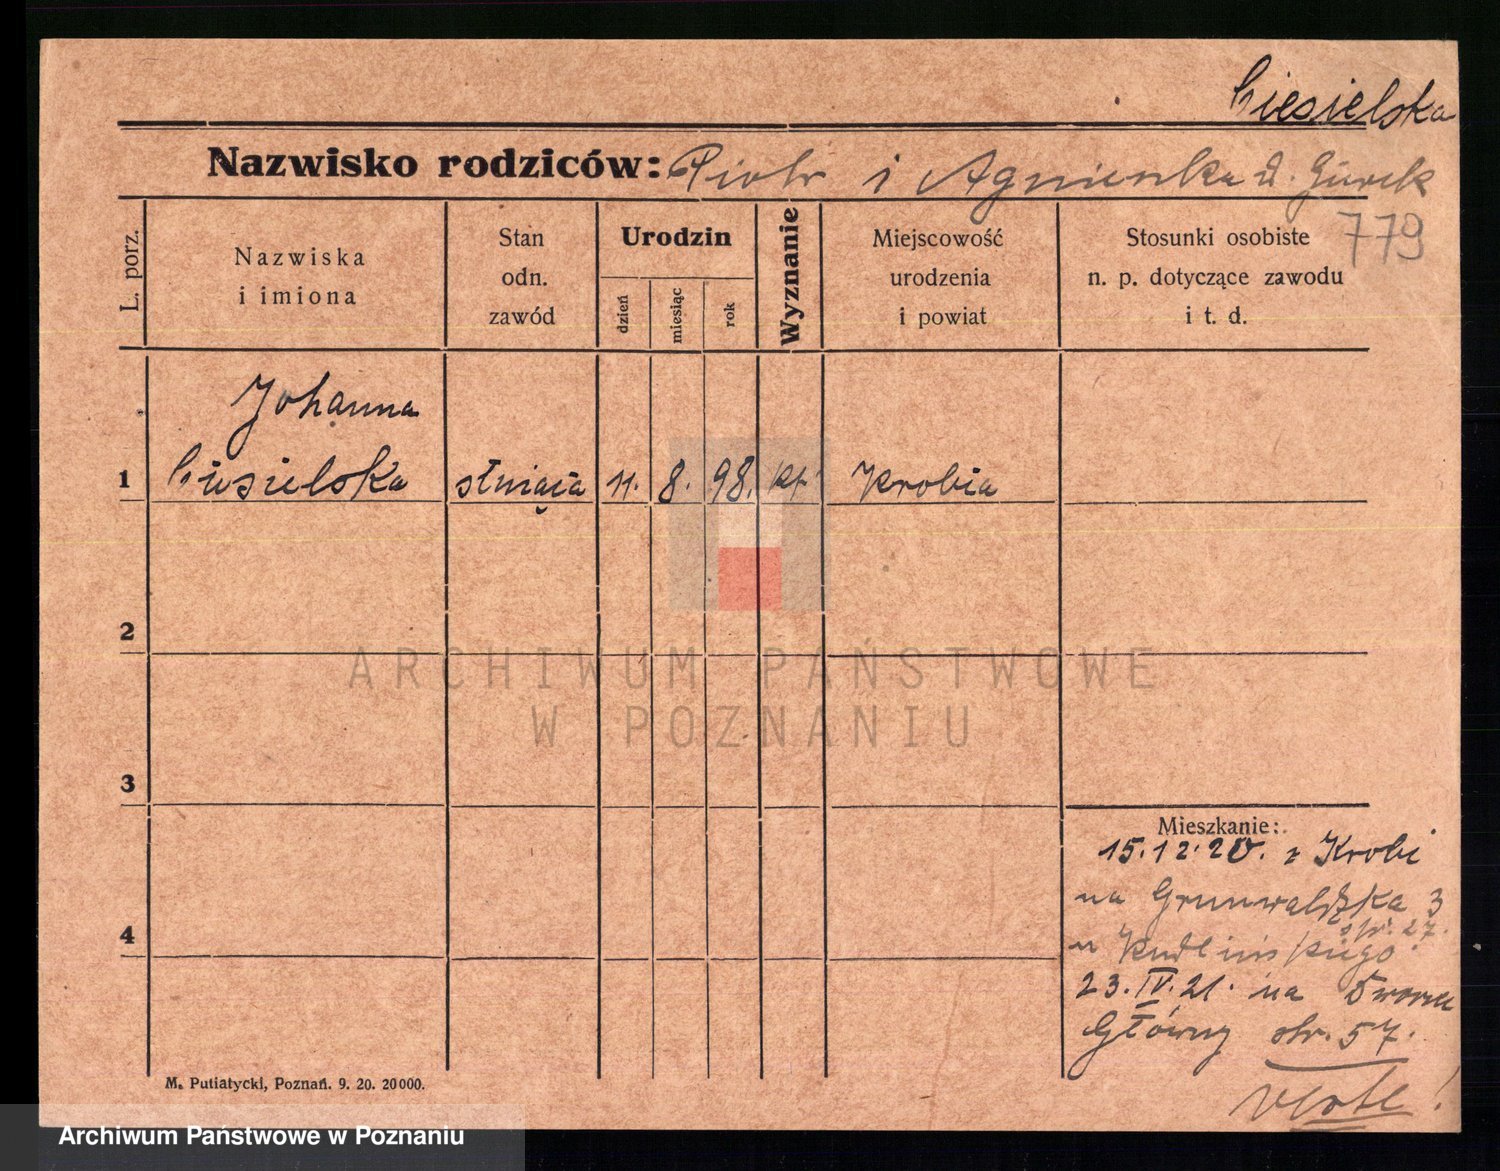 Ciesielska
Nazwisko rodziców: Piotr i Agnieszka d. Gurek
779
L. porz.
Nazwiska
i imiona
Stan
odn.
zawód
Urodzin
dzień
miesiąc
rok
Wyznanie
Miejscowość
urodzenia
i powiat
Stosunki osobiste
n. p. dotyczące zawodu
i t. d.
Johanna
1 Ciesielska służąca 11. 8. 98. kt. Krobia
2
3
4
Mieszkanie:
15.12.20. z Krobi
na Grunwaldzka 3
str. 27.
u
23.IV.21. na Dworzec
Główny str. 57.
verte!
M. Putiatycki, Poznań. 9. 20. 20000.
ARCHIWUM PAŃSTWOWE
W POZNANIU
Archiwum Państwowe w Poznaniu